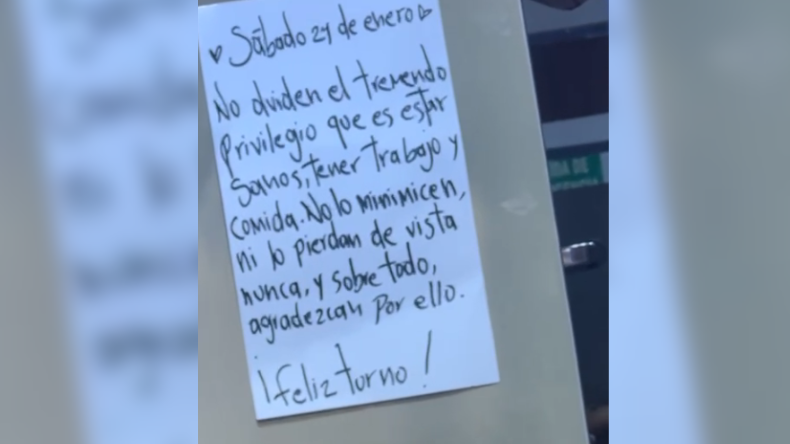 ♥ Sábado 24 de enero ♥
No olviden el tremendo
privilegio que es estar
sanos, tener trabajo y
comida. No lo minimicen,
ni lo pierdan de vista
nunca, y sobre todo,
agradezcan por ello.
¡Feliz turno!
DE